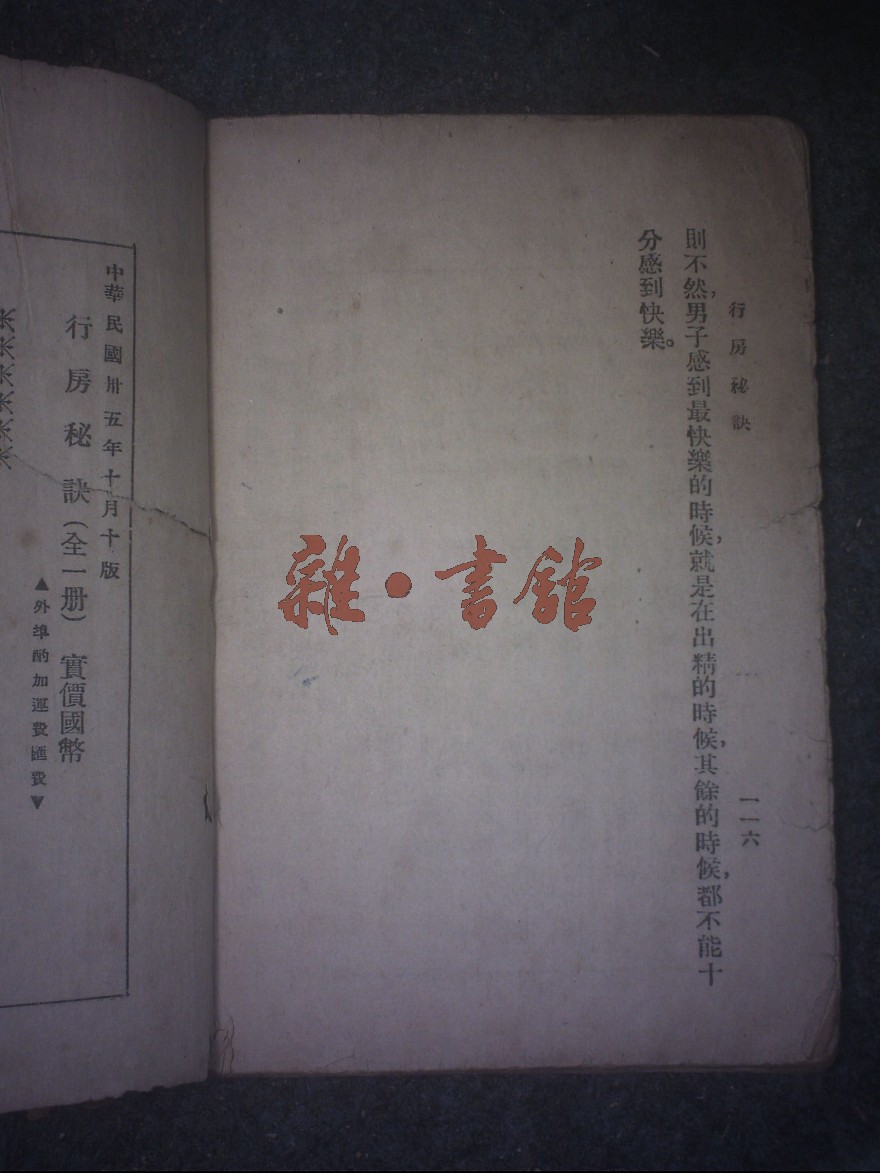 行房秘訣
一一六
則不然，男子感到最快樂的時候，就是在出精的時候，其餘的時候，都不能十
分感到快樂。
雜·書館
中華民國卅五年十月十版
行房秘訣（全一册） 實價國幣
▲外埠酌加運費匯費▼